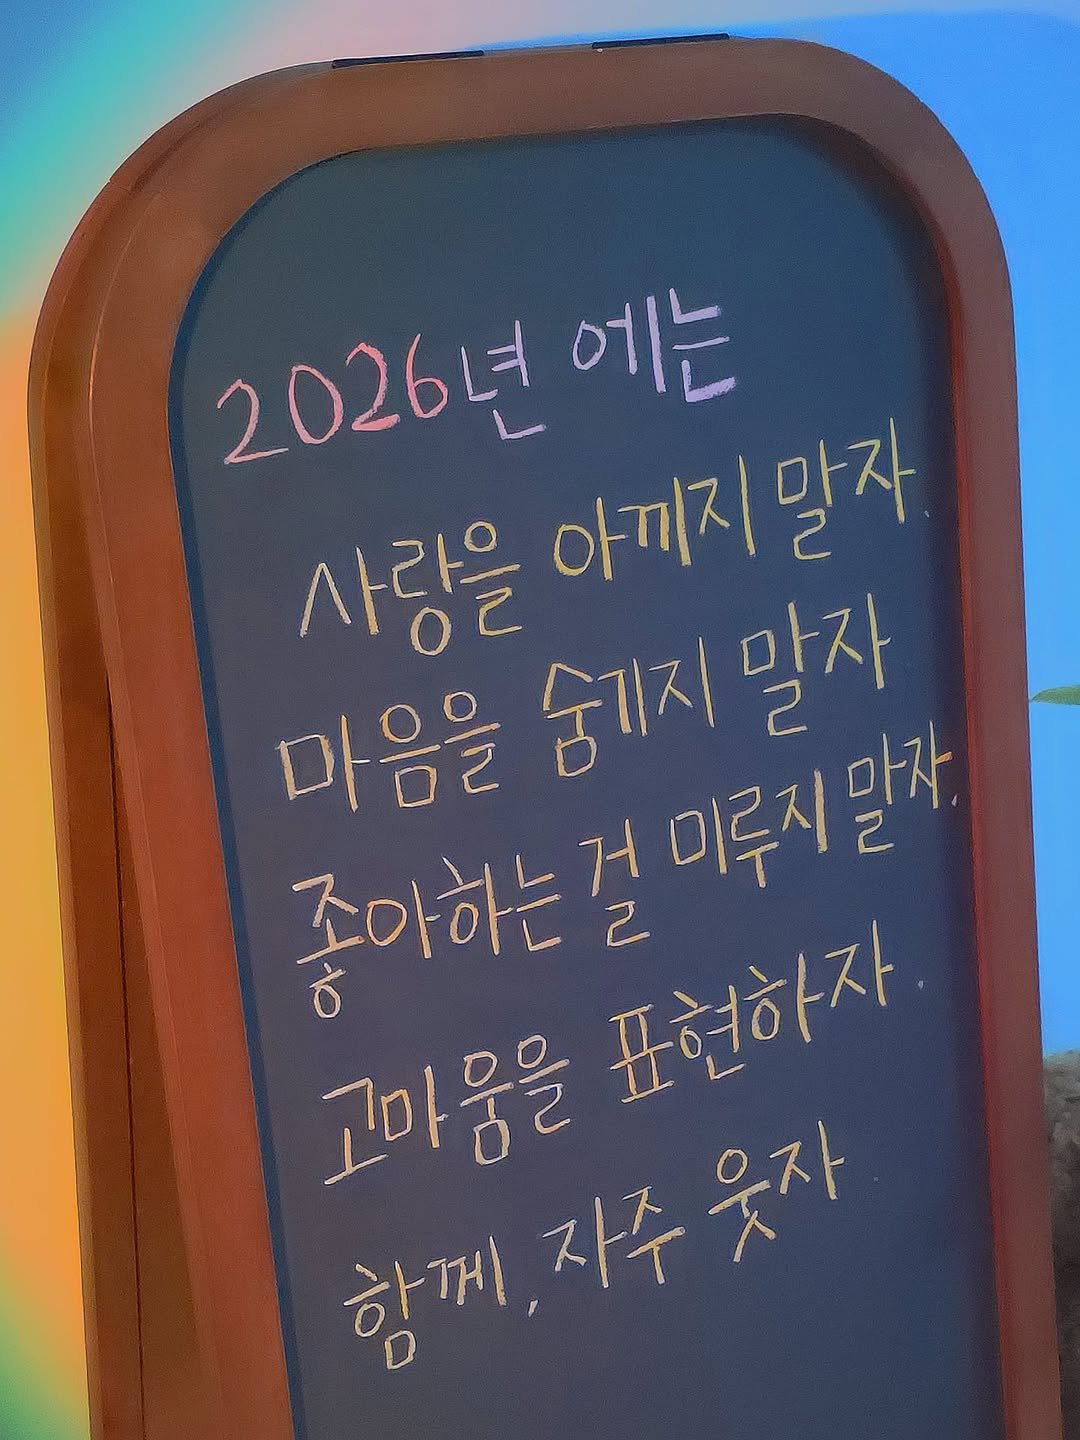 2026년 에는
사랑을 아끼지 말자.
마음을 숨기지 말자
좋아하는 걸 미루지 말자.
고마움을 표현하자.
함께, 자주 웃자